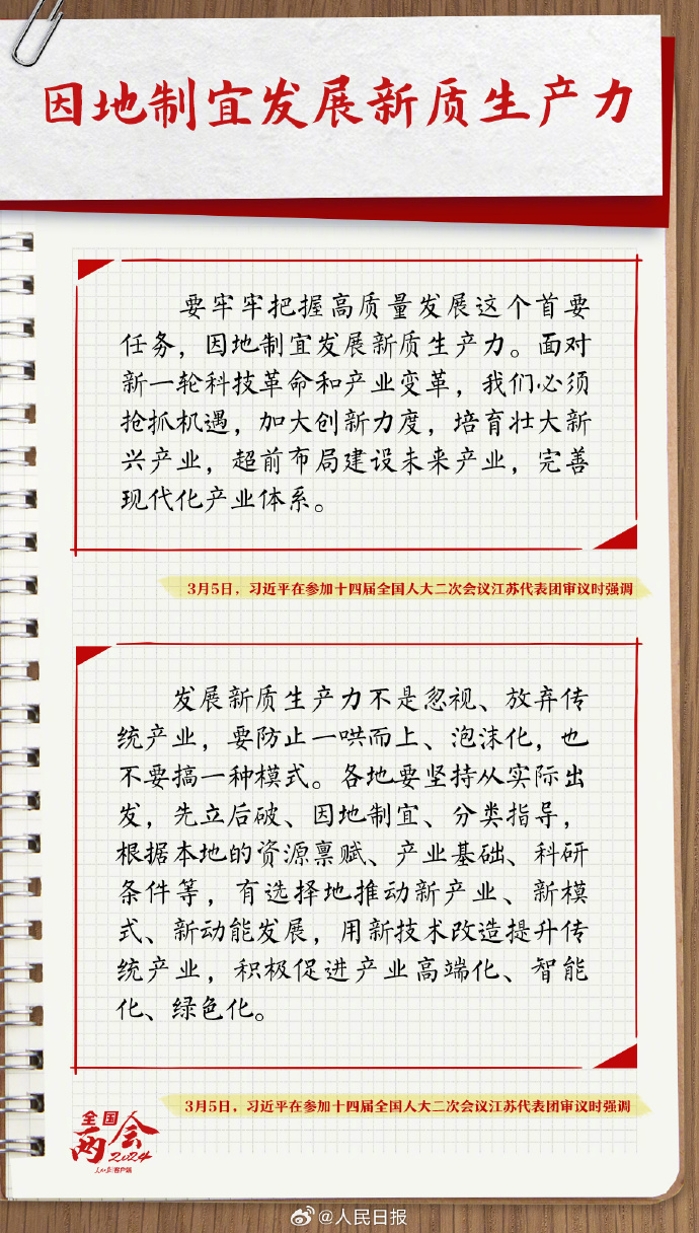 因地制宜发展新质生产力
要牢牢把握高质量发展这个首要
任务，因地制宜发展新质生产力。面对
新一轮科技革命和产业变革，我们必须
抢抓机遇，加大创新力度，培育壮大新
兴产业，超前布局建设未来产业，完善
现代化产业体系。
3月5日，习近平在参加十四届全国人大二次会议江苏代表团审议时强调
发展新质生产力不是忽视、放弃传
统产业，要防止一哄而上、泡沫化，也
不要搞一种模式。各地要坚持从实际出
发，先立后破、因地制宜、分类指导，
根据本地的资源禀赋、产业基础、科研
条件等，有选择地推动新产业、新模
式、新动能发展，用新技术改造提升传
统产业，积极促进产业高端化、智能
化、绿色化。
3月5日，习近平在参加十四届全国人大二次会议江苏代表团审议时强调
全国
两会
2024
人民日报客户端
@人民日报